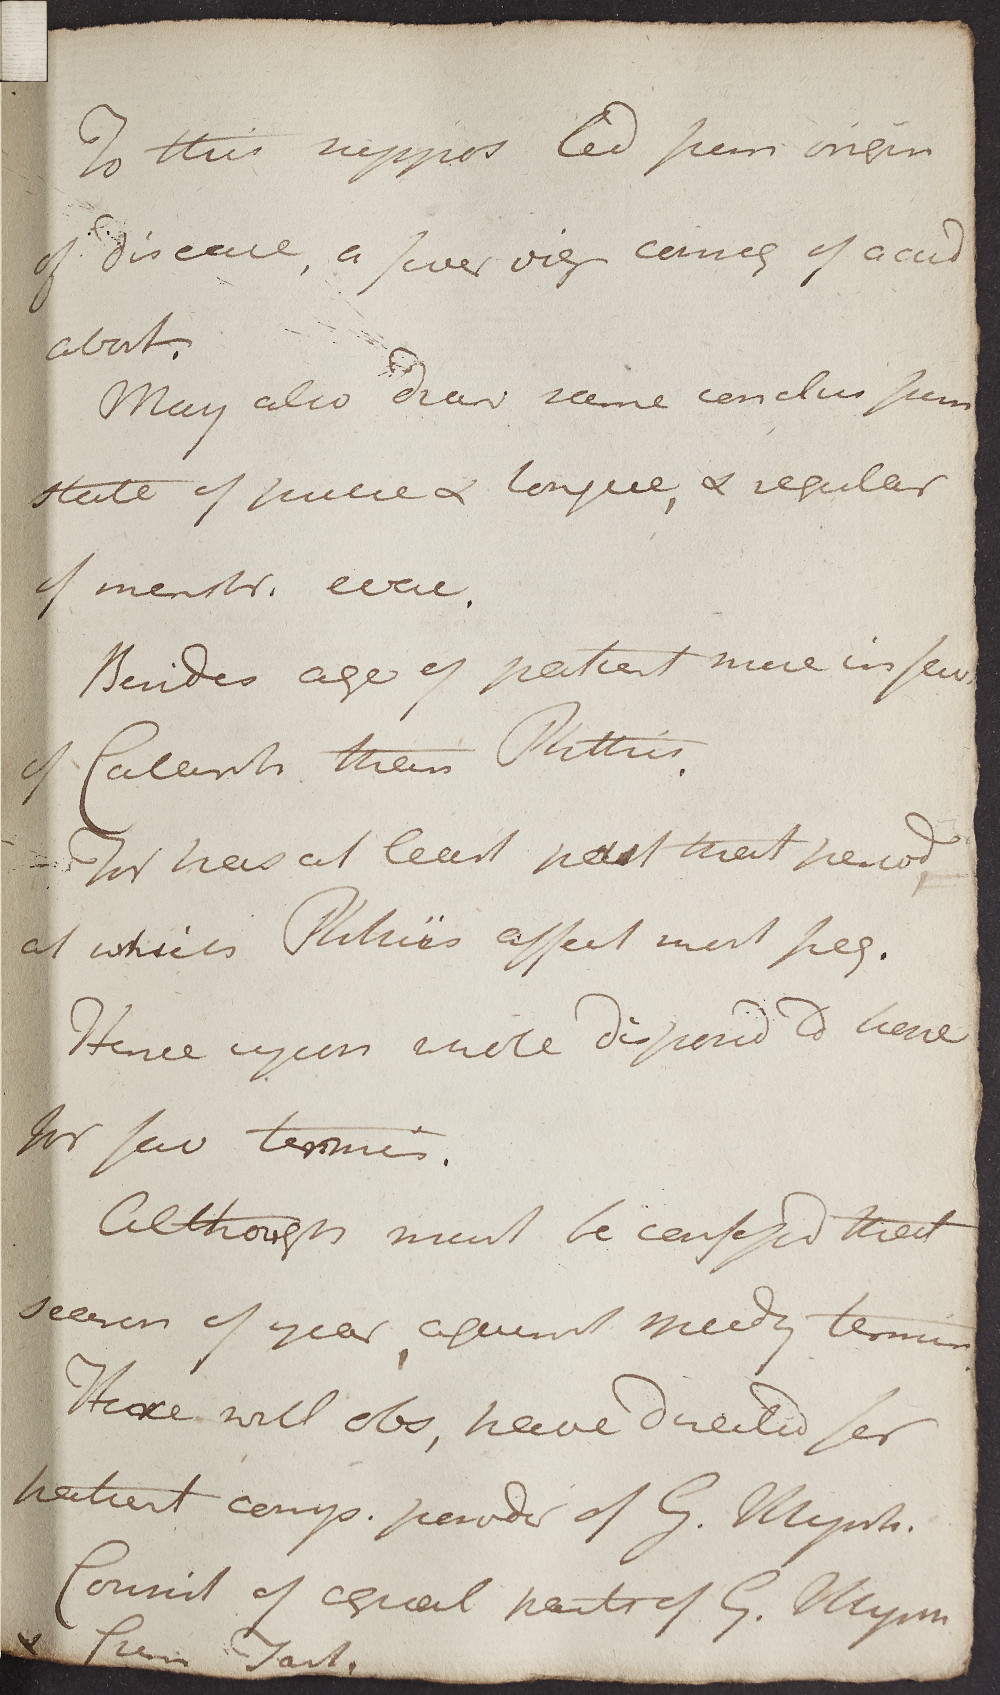 To this suppos led from origin
of disease, a fever vig comeg of accid
abort.
May also draw same conclus from
state of pulse & tongue, & regular
of menstr. evac.
Besides age of patient more in fav
of Catarrh than Phthis.
For has at least past that period,
at which Phthisis affect most freq.
Hence upon whole dispos'd to hope
for fav termin.
Although must be confess'd that
season of year, against speedy termin.
Here will obs, have directed for
patient comp. powder of G. Myrrh.
Consist of equal parts of G. Myrrh
& Crem Tart.